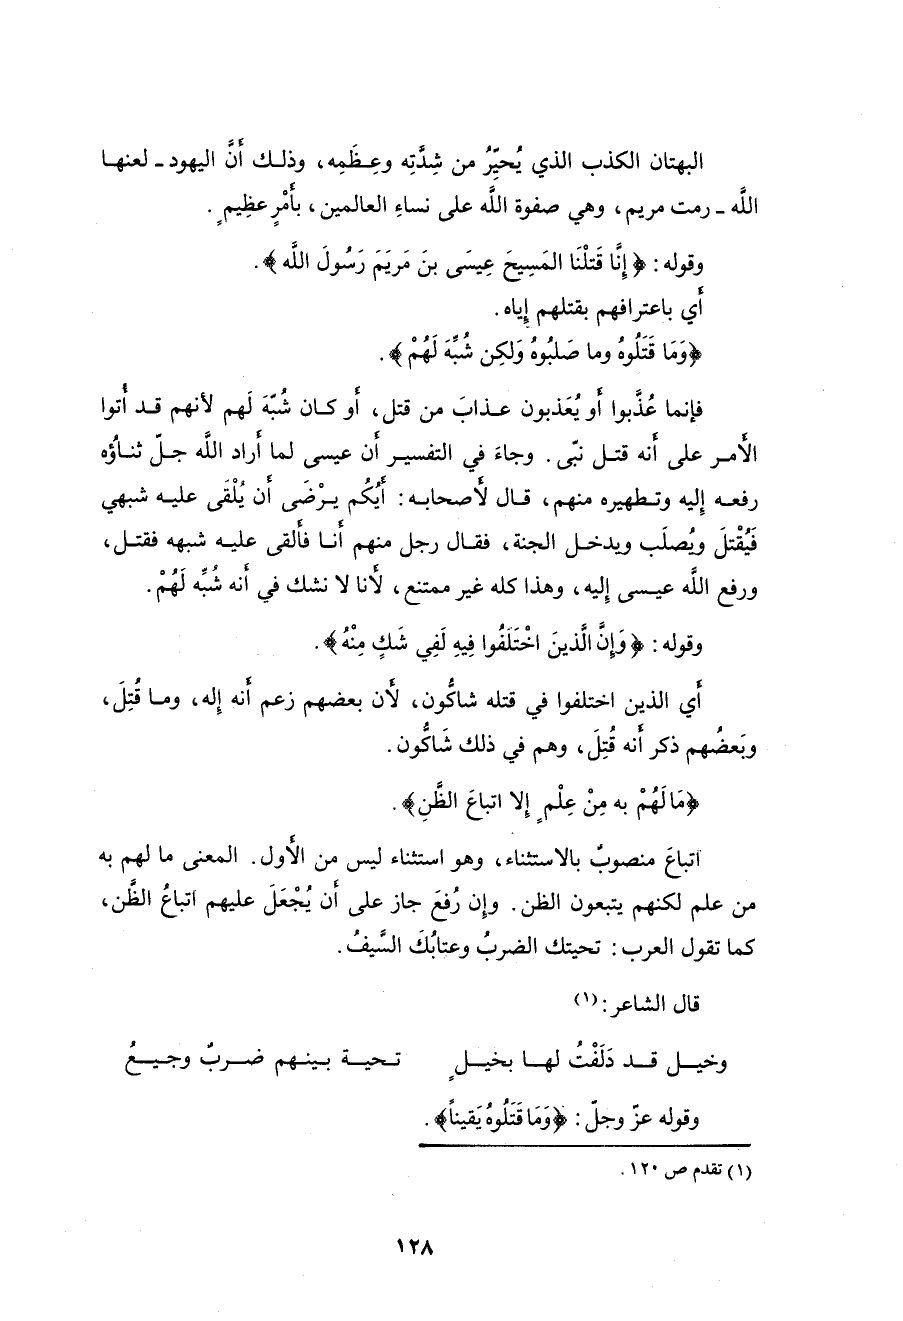 البهتان الكذب الذي يُحيِّرُ من شِدَّتِه وعِظَمِه، وذلك أَنَّ اليهود ـ لعنها
اللَّه ـ رمت مريم، وهي صفوة اللَّه على نساءِ العالمين، بأَمْرٍ عظيمٍ.
وقوله: ﴿إِنَّا قَتَلْنَا المَسِيحَ عِيسَى بنَ مَريَمَ رَسُولَ اللَّه﴾.
أَي باعترافهم بقتلهم إِياه.
﴿وَمَا قَتَلُوهُ وما صَلبُوهُ وَلكِن شُبِّهَ لَهُمْ﴾.
فإنما عُذِّبوا أَو يُعَذبون عـذابَ من قتل، أَو كـان شُبِّهَ لَهم لأنهم قـد أَتوا
الأَمر على أنه قتل نبّى. وجاءَ في التفسير أَن عيسى لما أَراد اللَّه جلّ ثناؤُه
رفعه إِليه وتطهيره منهم، قال لأَصحابه: أَيُكُم يرْضَى أَن يُلْقَى عليه شبهي
فَيُقْتلَ ويُصلَب ويدخل الجنة، فقال رجل منهم أَنا فأَلقى عليه شبهه فقتل،
ورفع اللَّه عيسى إِليه، وهذا كله غير ممتنع، لأَنا لا نشك في أَنه شُبِّه لَهُمْ.
وقوله: ﴿وَإِنَّ الَّذينَ اخْتَلَفُوا فِيهِ لَفِي شَكٍ مِنْهُ﴾.
أَي الذين اختلفوا في قتله شاكُّون، لأَن بعضهم زعم أَنه إله، وما قُتِلَ،
وبَعضُهم ذكر أَنه قُتِلَ، وهم في ذلك شَاكُّون.
﴿مَا لَهُمْ به مِنْ عِلْمٍ إِلا اتباعَ الظَّنِ﴾.
اتباعَ منصوبٌ بالاستثناء، وهو استثناء ليس من الأَول. المعنى ما لهم به
من علم لكنهم يتبعون الظن. وإن رُفعَ جاز على أَن يُجْعَلَ عليهم اتباعُ الظَّن،
كما تقول العرب: تحيتك الضربُ وعتابُكَ السَّيفُ.
قال الشاعر:(١)
وخيـل قـد دَلَفْتُ لهـا بخيـلٍ تحيـة بـينهـم ضـربٌ وجيـعُ
وقوله عزّ وجلّ: ﴿وَمَا قَتَلُوهُ يَقيناً﴾.
(١) تقدم ص ١٢٠.
١٢٨